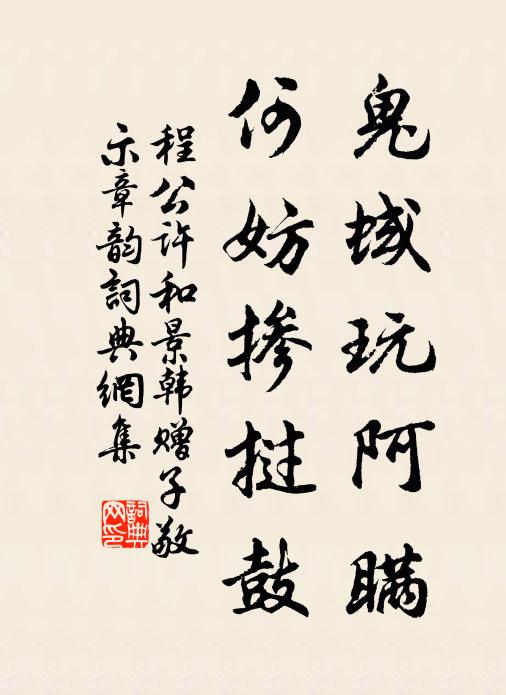 鬼域玩阿瞒
何妨掺挝鼓
程公许和景韩赠子敬
示章韵詞典網集
詞典
网印